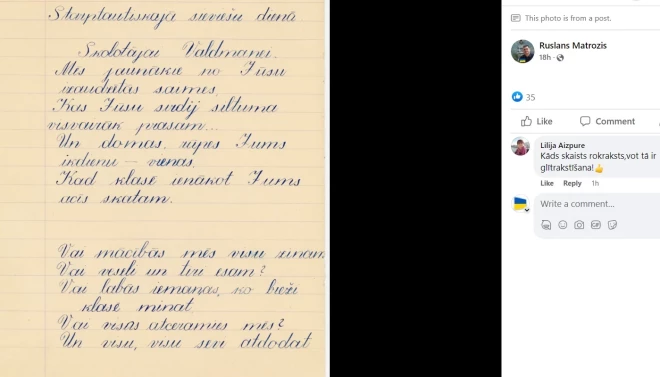 Starptautiskajā sieviešu dienā
Skolotājai Valdmanei.
Mēs jaunākie no Jūsu
audzētās saimes,
Kas Jūsu sirdij siltuma
visvairāk prasām...
Un domas, rūpes Jums
ikdienu – vienas,
Kad klasē ienākot Jums
acīs skatām.
Vai mācībās mēs visu zinām
Vai veseli un tīri esam?
Vai labās iemaņas, ko bieži
klasē minat,
Vai visās atceramies mēs?
Un visu, visu sevi atdodat
This photo is from a post.
Ruslans Matrozis
18h
35
Like
Comment
Lilija Aizpure
Kāds skaists rokraksts,vot tā ir
glītrakstīšana!
Like Reply 1h
Write a comment...
GIF